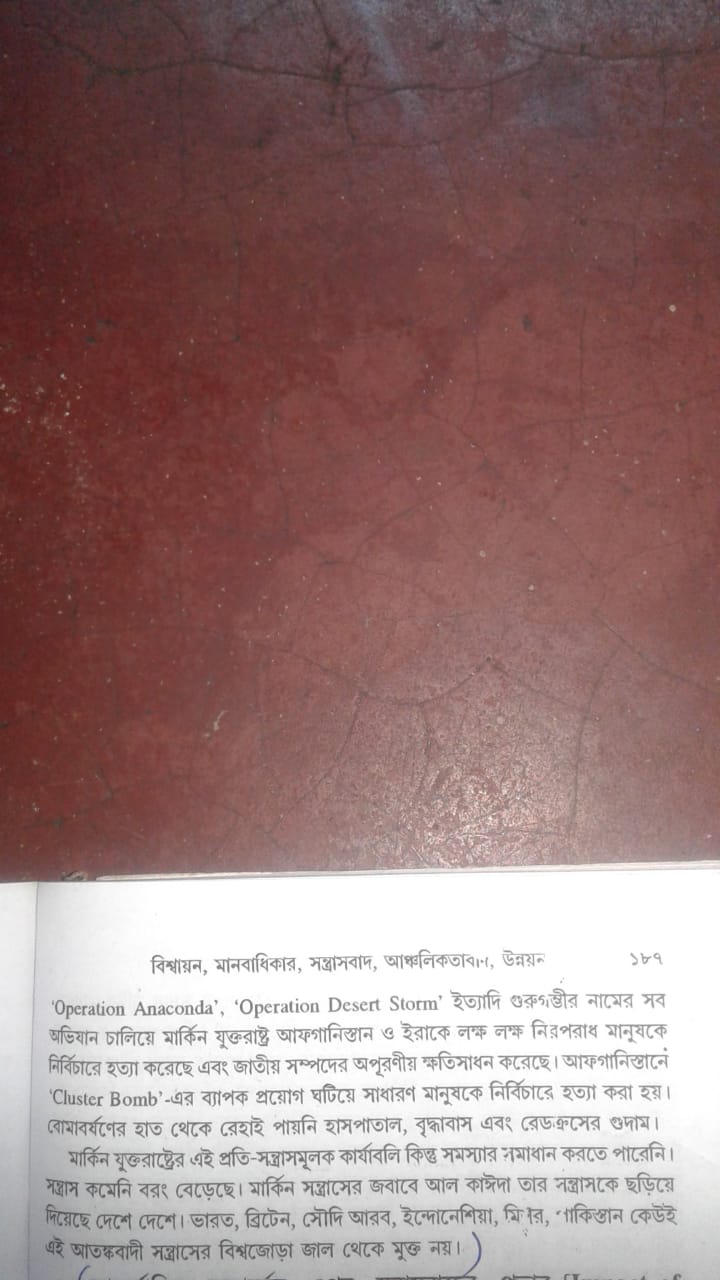 বিশ্বায়ন, মানবাধিকার, সন্ত্রাসবাদ, আঞ্চলিকতাবাদ, উন্নয়ন ১৮৭
‘Operation Anaconda’, ‘Operation Desert Storm’ ইত্যাদি গুরুগম্ভীর নামের সব
অভিযান চালিয়ে মার্কিন যুক্তরাষ্ট্র আফগানিস্তান ও ইরাকে লক্ষ লক্ষ নিরপরাধ মানুষকে
নির্বিচারে হত্যা করেছে এবং জাতীয় সম্পদের অপূরণীয় ক্ষতিসাধন করেছে। আফগানিস্তানে
‘Cluster Bomb’-এর ব্যাপক প্রয়োগ ঘটিয়ে সাধারণ মানুষকে নির্বিচারে হত্যা করা হয়।
বোমাবর্ষণের হাত থেকে রেহাই পায়নি হাসপাতাল, বৃদ্ধাবাস এবং রেডক্রসের গুদাম।
মার্কিন যুক্তরাষ্ট্রের এই প্রতি-সন্ত্রাসমূলক কার্যাবলি কিন্তু সমস্যার সমাধান করতে পারেনি।
সন্ত্রাস কমেনি বরং বেড়েছে। মার্কিন সন্ত্রাসের জবাবে আল কাঈদা তার সন্ত্রাসকে ছড়িয়ে
দিয়েছে দেশে দেশে। ভারত, ব্রিটেন, সৌদি আরব, ইন্দোনেশিয়া, মিশর, পাকিস্তান কেউই
এই আতঙ্কবাদী সন্ত্রাসের বিশ্বজোড়া জাল থেকে মুক্ত নয়।